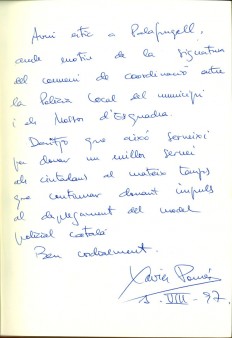 Avui estic a Palafrugell,
amb motiu de la signatura
del conveni de coordinació entre
la Policia Local del municipi
i els Mossos d'Esquadra.
Desitjo que això serveixi
per donar un millor servei
als ciutadans al mateix temps
que continuar donant impuls
al desplegament del model
policial català
Ben cordialment.
Xavier Pomés
1. VIII - 97.